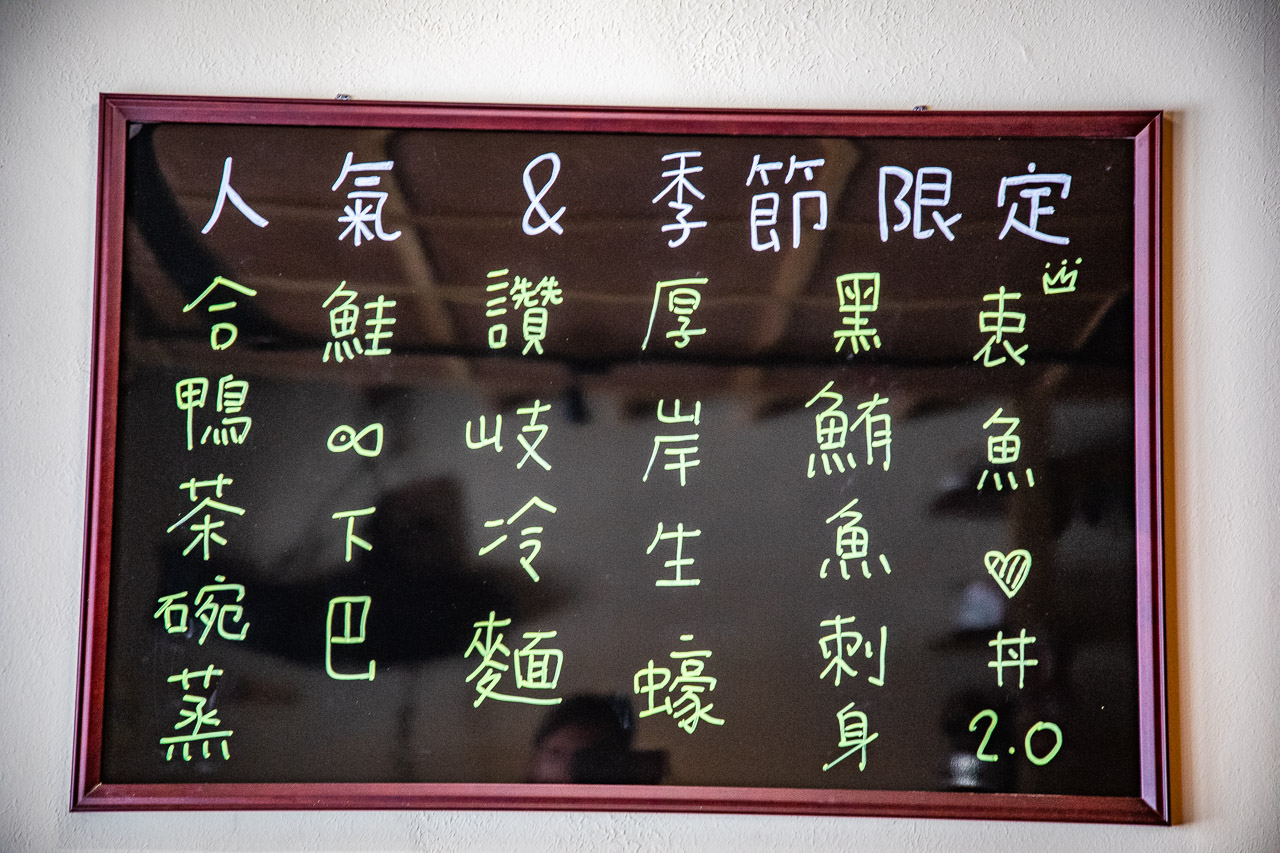 人氣 & 季節限定
衷魚♡丼2.0
黑鮪魚刺身
厚岸生蠔
讚岐冷麵
鮭∞下巴
合鴨茶碗蒸